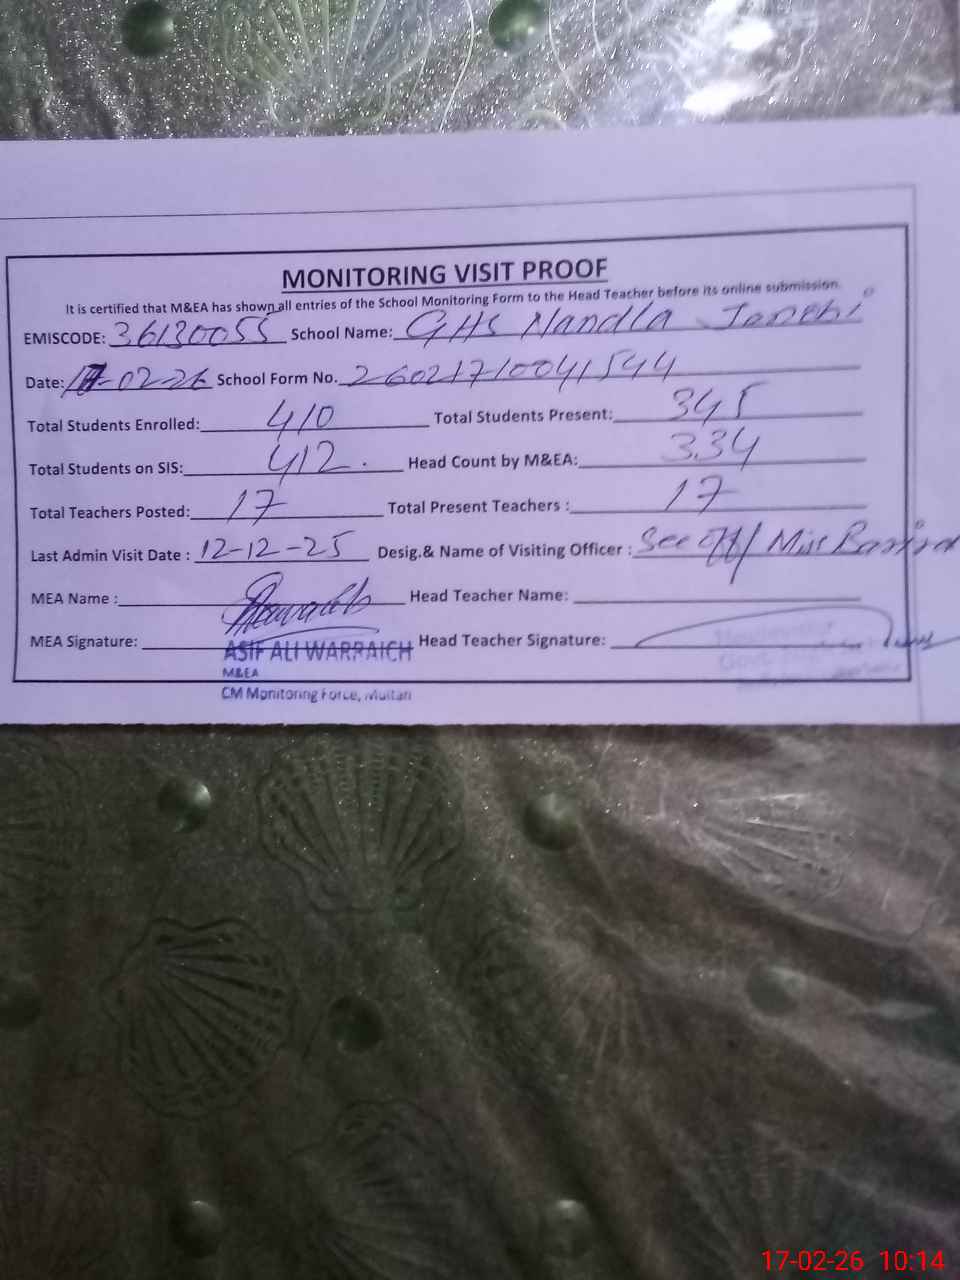 MONITORING VISIT PROOF
It is certified that M&EA has shown all entries of the School Monitoring Form to the Head Teacher before its online submission.
EMISCODE: 36130055 School Name: GHS Nandla
Date: 17-02-26 School Form No. 26021710041544
Total Students Enrolled: 410 Total Students Present: 345
Total Students on SIS: 412. Head Count by M&EA: 334
Total Teachers Posted: 17 Total Present Teachers : 17
Last Admin Visit Date : 12-12-25 Desig.& Name of Visiting Officer : See Off/ Miss
MEA Name : Head Teacher Name:
MEA Signature: Head Teacher Signature:
ASIF ALI WARRAICH
M&EA
CM Monitoring Force, Multan
17-02-26 10:14